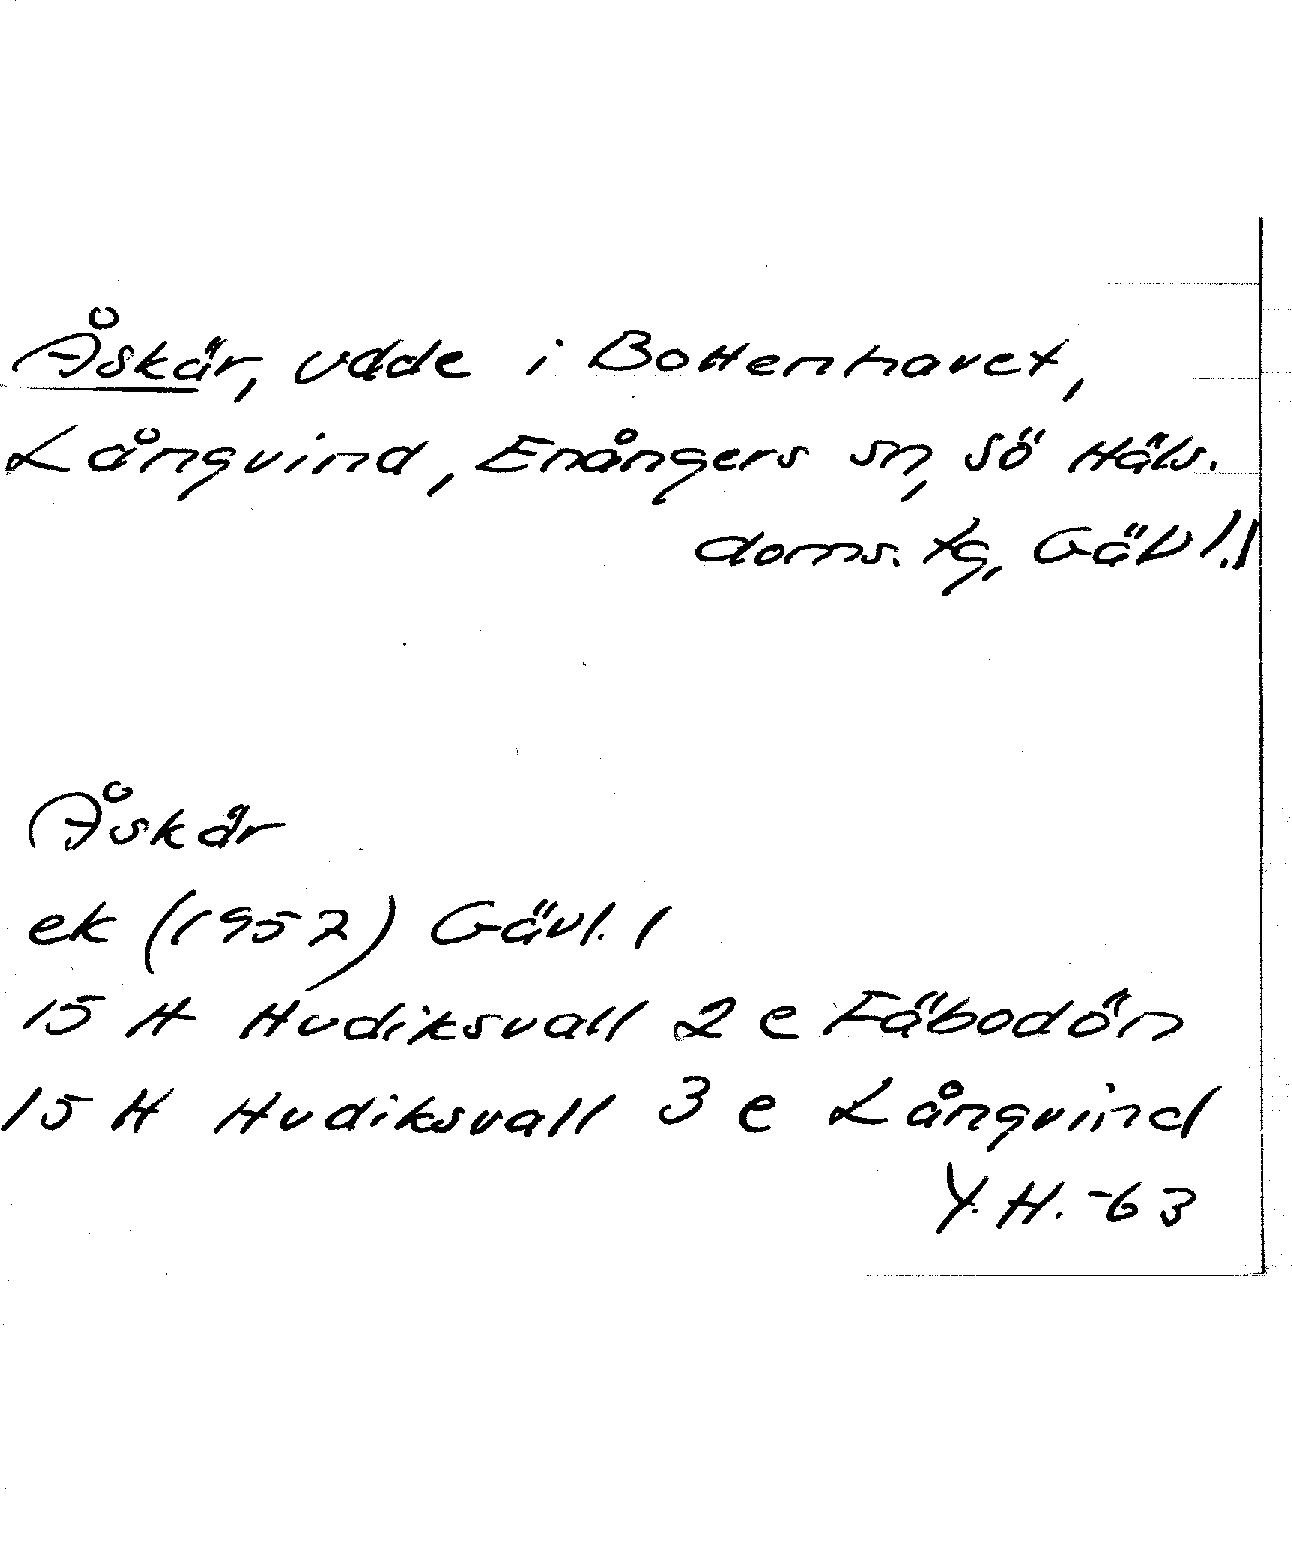 Åskär, udde i Bottenhavet,
Långvind, Enångers sn, Sö Häls.
doms. tg, Gävl l.
Åskär
ek (1957) Gävl. l
15 H Hudiksvall 2 e Fäbodön
15 H Hudiksvall 3 e Långvind
Y. H. -63